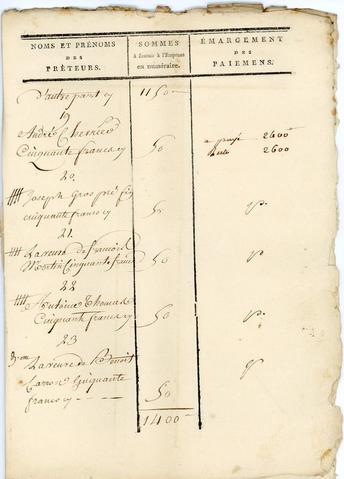 NOMS ET PRÉNOMS
DES
PRÊTEURS.
SOMMES
à fournir à l'Emprunt
en numéraire.
ÉMARGEMENT
DES
PAIEMENS.
D'autre part cy 1150
19
André
Cinquante francs cy 50 2600
2600
20
Joseph Gros
cinquante francs cy 50
21
La veuve de
Martin Cinquante francs 50
22
Antoine Thomas
Cinquante francs cy 50
23
La veuve de Benoit
Carron Cinquante
francs cy 50
1400